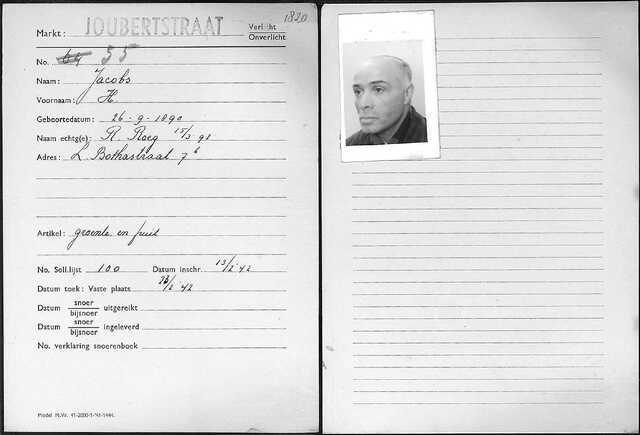 1820
Markt: JOUBERTSTRAAT Verlicht
Onverlicht
No. 64 55
Naam: Jacobs
Voornaam: H.
Geboortedatum: 26-9-1890
Naam echtg(e): R. Roeg 15/3 92
Adres: L. Bothastraat 7
Artikel: groente en fruit
No. Soll.lijst 100 Datum inschr. 13/2 42
Datum toek: Vaste plaats 23/2 42
Datum snoer
bijsnoer uitgereikt
Datum snoer
bijsnoer ingeleverd
No. verklaring snoerenboek
Model M.W.